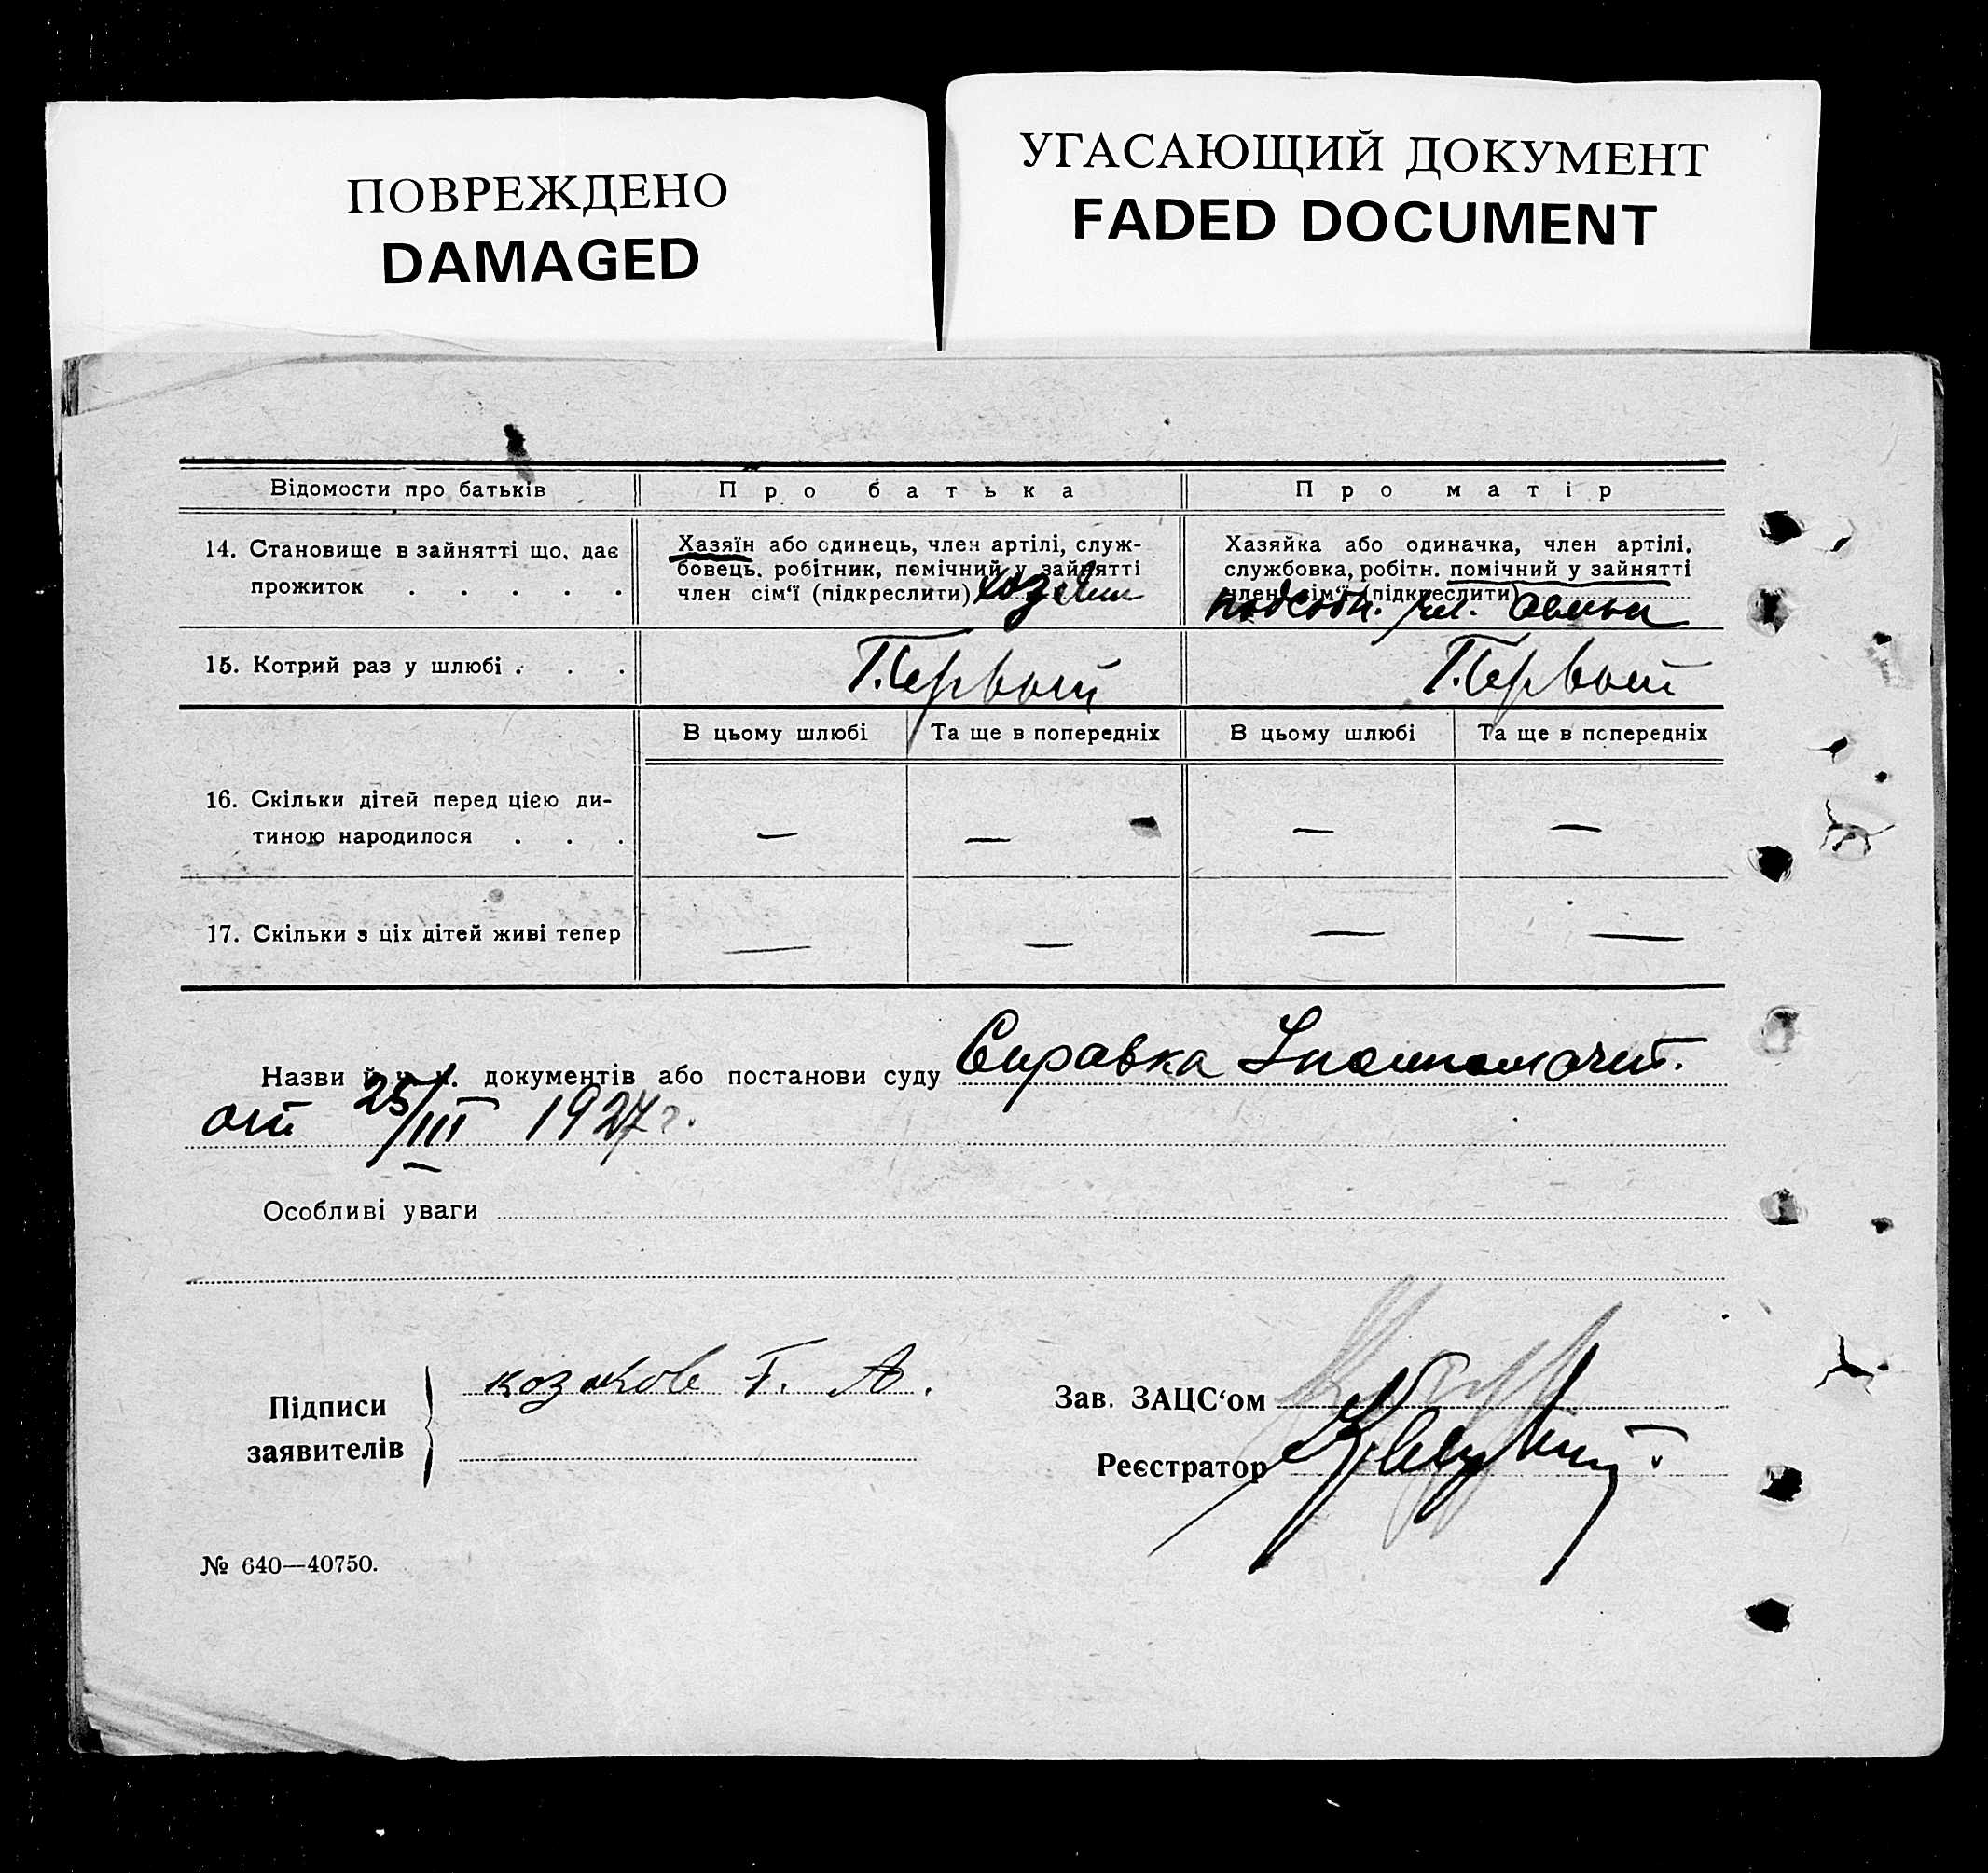 ПОВРЕЖДЕНО
DAMAGED
УГАСАЮЩИЙ ДОКУМЕНТ
FADED DOCUMENT
Відомости про батьків
Про батька
Про матір
14. Становище в зайнятті що, дає
прожиток . . . . .
Хазяїн або одинець, член артілі, служ-
бовець, робітник, помічний у зайнятті
член сім'ї (підкреслити) хозяин
Хазяйка або одиначка, член артілі,
службовка, робітн. помічний у зайнятті
член сім'ї (підкреслити)
подсобн. чл. семьи
15. Котрий раз у шлюбі . . .
Первый
Первый
В цьому шлюбі
Та ще в попередніх
В цьому шлюбі
Та ще в попередніх
16. Скільки дітей перед цією ди-
тиною народилося . . .
— — — —
17. Скільки з ціх дітей живі тепер
— — — —
Назви й ч.ч. документів або постанови суду Справка
от 25/III 1927 г.
Особливі уваги
Підписи
заявителів
козаков Г. А.
Зав. ЗАЦС'ом
Реєстратор
№ 640—40750.